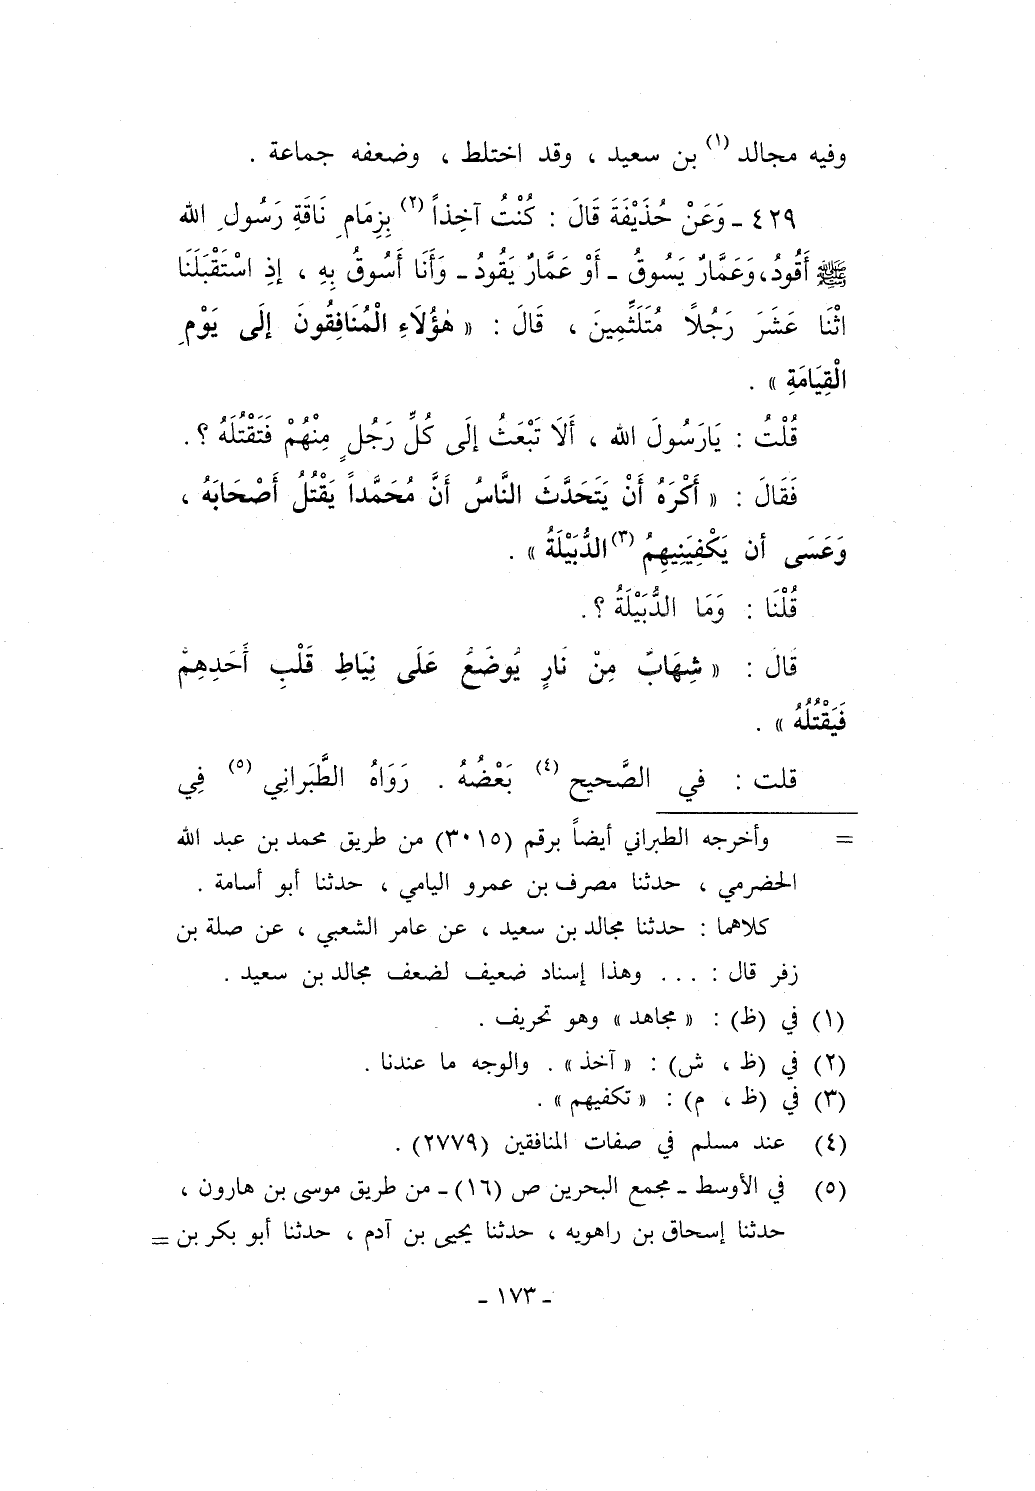 وفيه مجالد (١) بن سعيد ، وقد اختلط ، وضعفه جماعة .
٤٢٩ ـ وَعَنْ حُذَيْفَةَ قَالَ : كُنْتُ آخِذاً (٢) بِزِمَامِ نَاقَةِ رَسُولِ الله
ﷺ أَقُودُ، وَعَمَّارٌ يَسُوقُ ـ أَوْ عَمَّارٌ يَقُودُ ـ وَأَنَا أَسُوقُ بِهِ ، إِذِ اسْتَقْبَلَنَا
اثْنَا عَشَرَ رَجُلاً مُتَلَثِّمِينَ ، قَالَ : « هٰؤُلَاءِ الْمُنَافِقُونَ إلَى يَوْمِ
الْقِيَامَةِ » .
قُلْتُ : يَارَسُولَ الله ، أَلَا تَبْعَثُ إلَى كُلِّ رَجُلٍ مِنْهُمْ فَتَقْتُلَهُ ؟ .
فَقَالَ : « أَكْرَهُ أَنْ يَتَحَدَّثَ النَّاسُ أَنَّ مُحَمَّداً يَقْتُلُ أَصْحَابَهُ ،
وَعَسَى أن يَكْفِيَنِيهِمُ (٣) الدُّبَيْلَةُ » .
قُلْنَا : وَمَا الدُّبَيْلَةُ ؟ .
قَالَ : « شِهَابٌ مِنْ نَارٍ يُوضَعُ عَلَى نِيَاطِ قَلْبِ أَحَدِهِمْ
فَيَقْتُلُهُ » .
قلت : في الصَّحيح (٤) بَعْضُهُ . رَوَاهُ الطَّبَرانِي (٥) فِي
= وأخرجه الطبراني أيضاً برقم (٣٠١٥) من طريق محمد بن عبد الله
الحضرمي ، حدثنا مصرف بن عمرو اليامي ، حدثنا أبو أسامة .
كلاهما : حدثنا مجالد بن سعيد ، عن عامر الشعبي ، عن صلة بن
زفر قال : ... وهذا إسناد ضعيف لضعف مجالد بن سعيد .
(١) في (ظ) : « مجاهد » وهو تحريف .
(٢) في (ظ ، ش) : « آخذ » . والوجه ما عندنا .
(٣) في (ظ ، م) : « تكفيهم » .
(٤) عند مسلم في صفات المنافقين (٢٧٧٩) .
(٥) في الأوسط ـ مجمع البحرين ص (١٦) ـ من طريق موسى بن هارون ،
حدثنا إسحاق بن راهويه ، حدثنا يحيى بن آدم ، حدثنا أبو بكر بن =
ـ ١٧٣ ـ